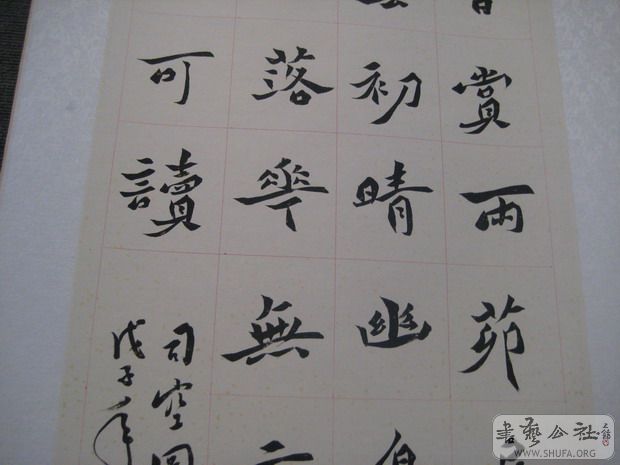 賞雨茆
初晴幽
落華無
可讀
司空圖
戊子年
書藝公社
WWW.SHUFA.ORG